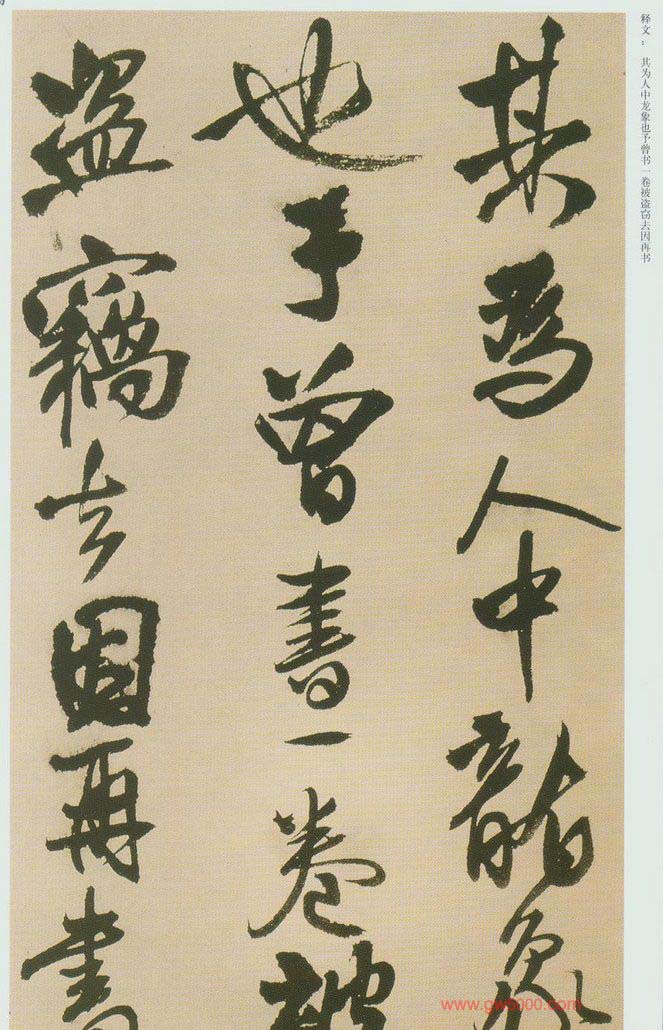 其為人中龍象
也予曾書一卷被
盜竊去因再書
释文：其为人中龙象也予曾书一卷被盗窃去因再书
www.gwz000.com